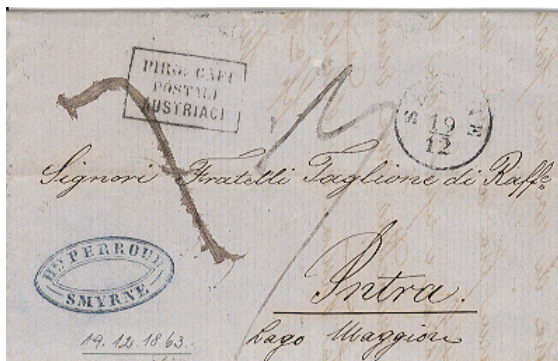 PIROSCAFI
POSTALI
AUSTRIACI
19
12
Signori Fratelli Taglione di Raff.
Intra.
Lago Maggiore
Hy. PERROUD
SMYRNE
19.12.1863.